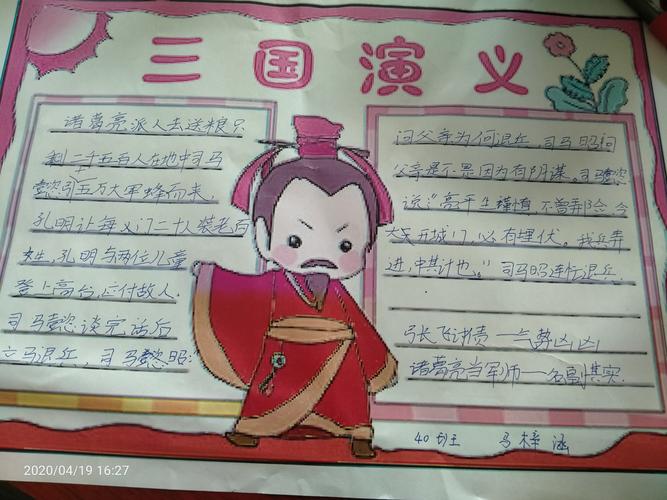 三国演义
诸葛亮派人去送粮只
剩二千五百人在地中司马
懿引五万大军蜂而来,
孔明让每义门二十人装老百
姓,孔明与两位儿童
登上高台,应付故人.
司马懿谈完话后
立马退兵,司马懿昭:
问父亲为何退兵,司马昭问
父亲是不是因为有阴谋。司马懿
说:"亮平生谨慎,不曾弄险,今
大开城门,必有埋伏。我兵弄
进,中其计也。"司马昭连忙退兵.
弓长飞讨债一气势凶凶
诸葛亮当军师一名副其实.
40班王
马梓涵
2020/04/19 16:27